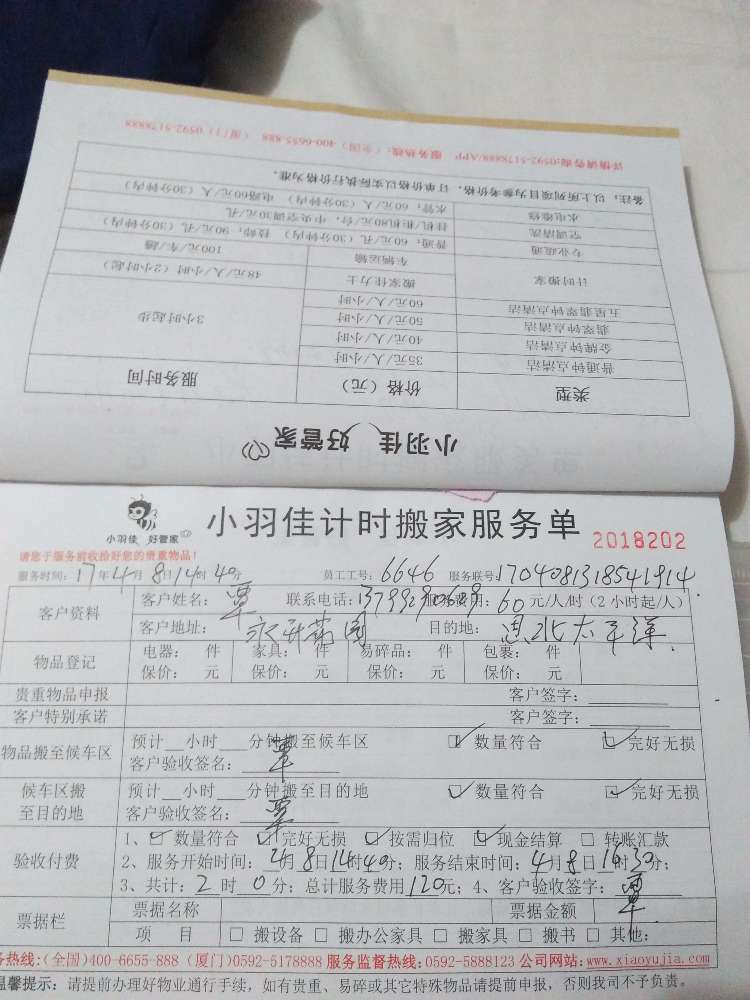 小羽佳 好管家
类型 价格（元） 服务时间
普通钟点清洁 35元/人/小时 3小时起步
金牌钟点清洁 40元/人/小时
翡翠钟点清洁 50元/人/小时
五星翡翠钟点清洁 60元/人/小时
计时搬家 搬家佳力士 48元/人/小时（2小时起）
车辆运输 100元/车/趟
专业疏通 普通：60元/孔（30分钟内） 技帅：90元/孔（30分钟内）
空调清洗 挂机/柜机80元/台，中央空调30元/孔
水电维修 水管：60元/人（30分钟内） 电路60元/人（30分钟内）
备注：以上所列项目为参考价格，订单价格以实际执行价格为准。
详情请咨询:0592-5178888/APP 服务热线：（全国）400-6655-888 （厦门）0592-5178888
小羽佳 好管家
小羽佳计时搬家服务单 2018202
请您于服务前收拾好您的贵重物品！
服务时间：17年4月8日14时40分 员工工号：6646 服务联号1704081318541914
客户资料 客户姓名：覃 联系电话： 服务费用：60元/人/时（2小时起/人）
客户地址： 目的地：思北太平洋
物品登记 电器： 件 家具： 件 易碎品： 件 包裹： 件
保价： 元 保价： 元 保价： 元 保价： 元
贵重物品申报 客户签字：
客户特别承诺 客户签字：
物品搬至候车区 预计__小时___分钟搬至候车区 ☑ 数量符合 ☑ 完好无损
客户验收签名：覃
候车区搬至目的地 预计__小时___分钟搬至目的地 ☑ 数量符合 ☑ 完好无损
客户验收签名：覃
验收付费 1、☑ 数量符合 ☑ 完好无损 ☑ 按需归位 ☑ 现金结算 □ 转账汇款
2、服务开始时间：4月8日14时40分；服务结束时间：4月8日16时30分；
3、共计：2时0分；总计服务费用120元；4、客户验收签字：覃
票据栏 票据名称 票据金额
项 目 □ 搬设备 □ 搬办公家具 □ 搬家具 □ 搬书 □ 其他:
务热线:(全国)400-6655-888 (厦门)0592-5178888 服务监督热线:0592-5888123 公司网站:www.xiaoyujia.com
温馨提示：请提前办理好物业通行手续，如有贵重、易碎或其它特殊物品请提前申报，否则我司不予负责。